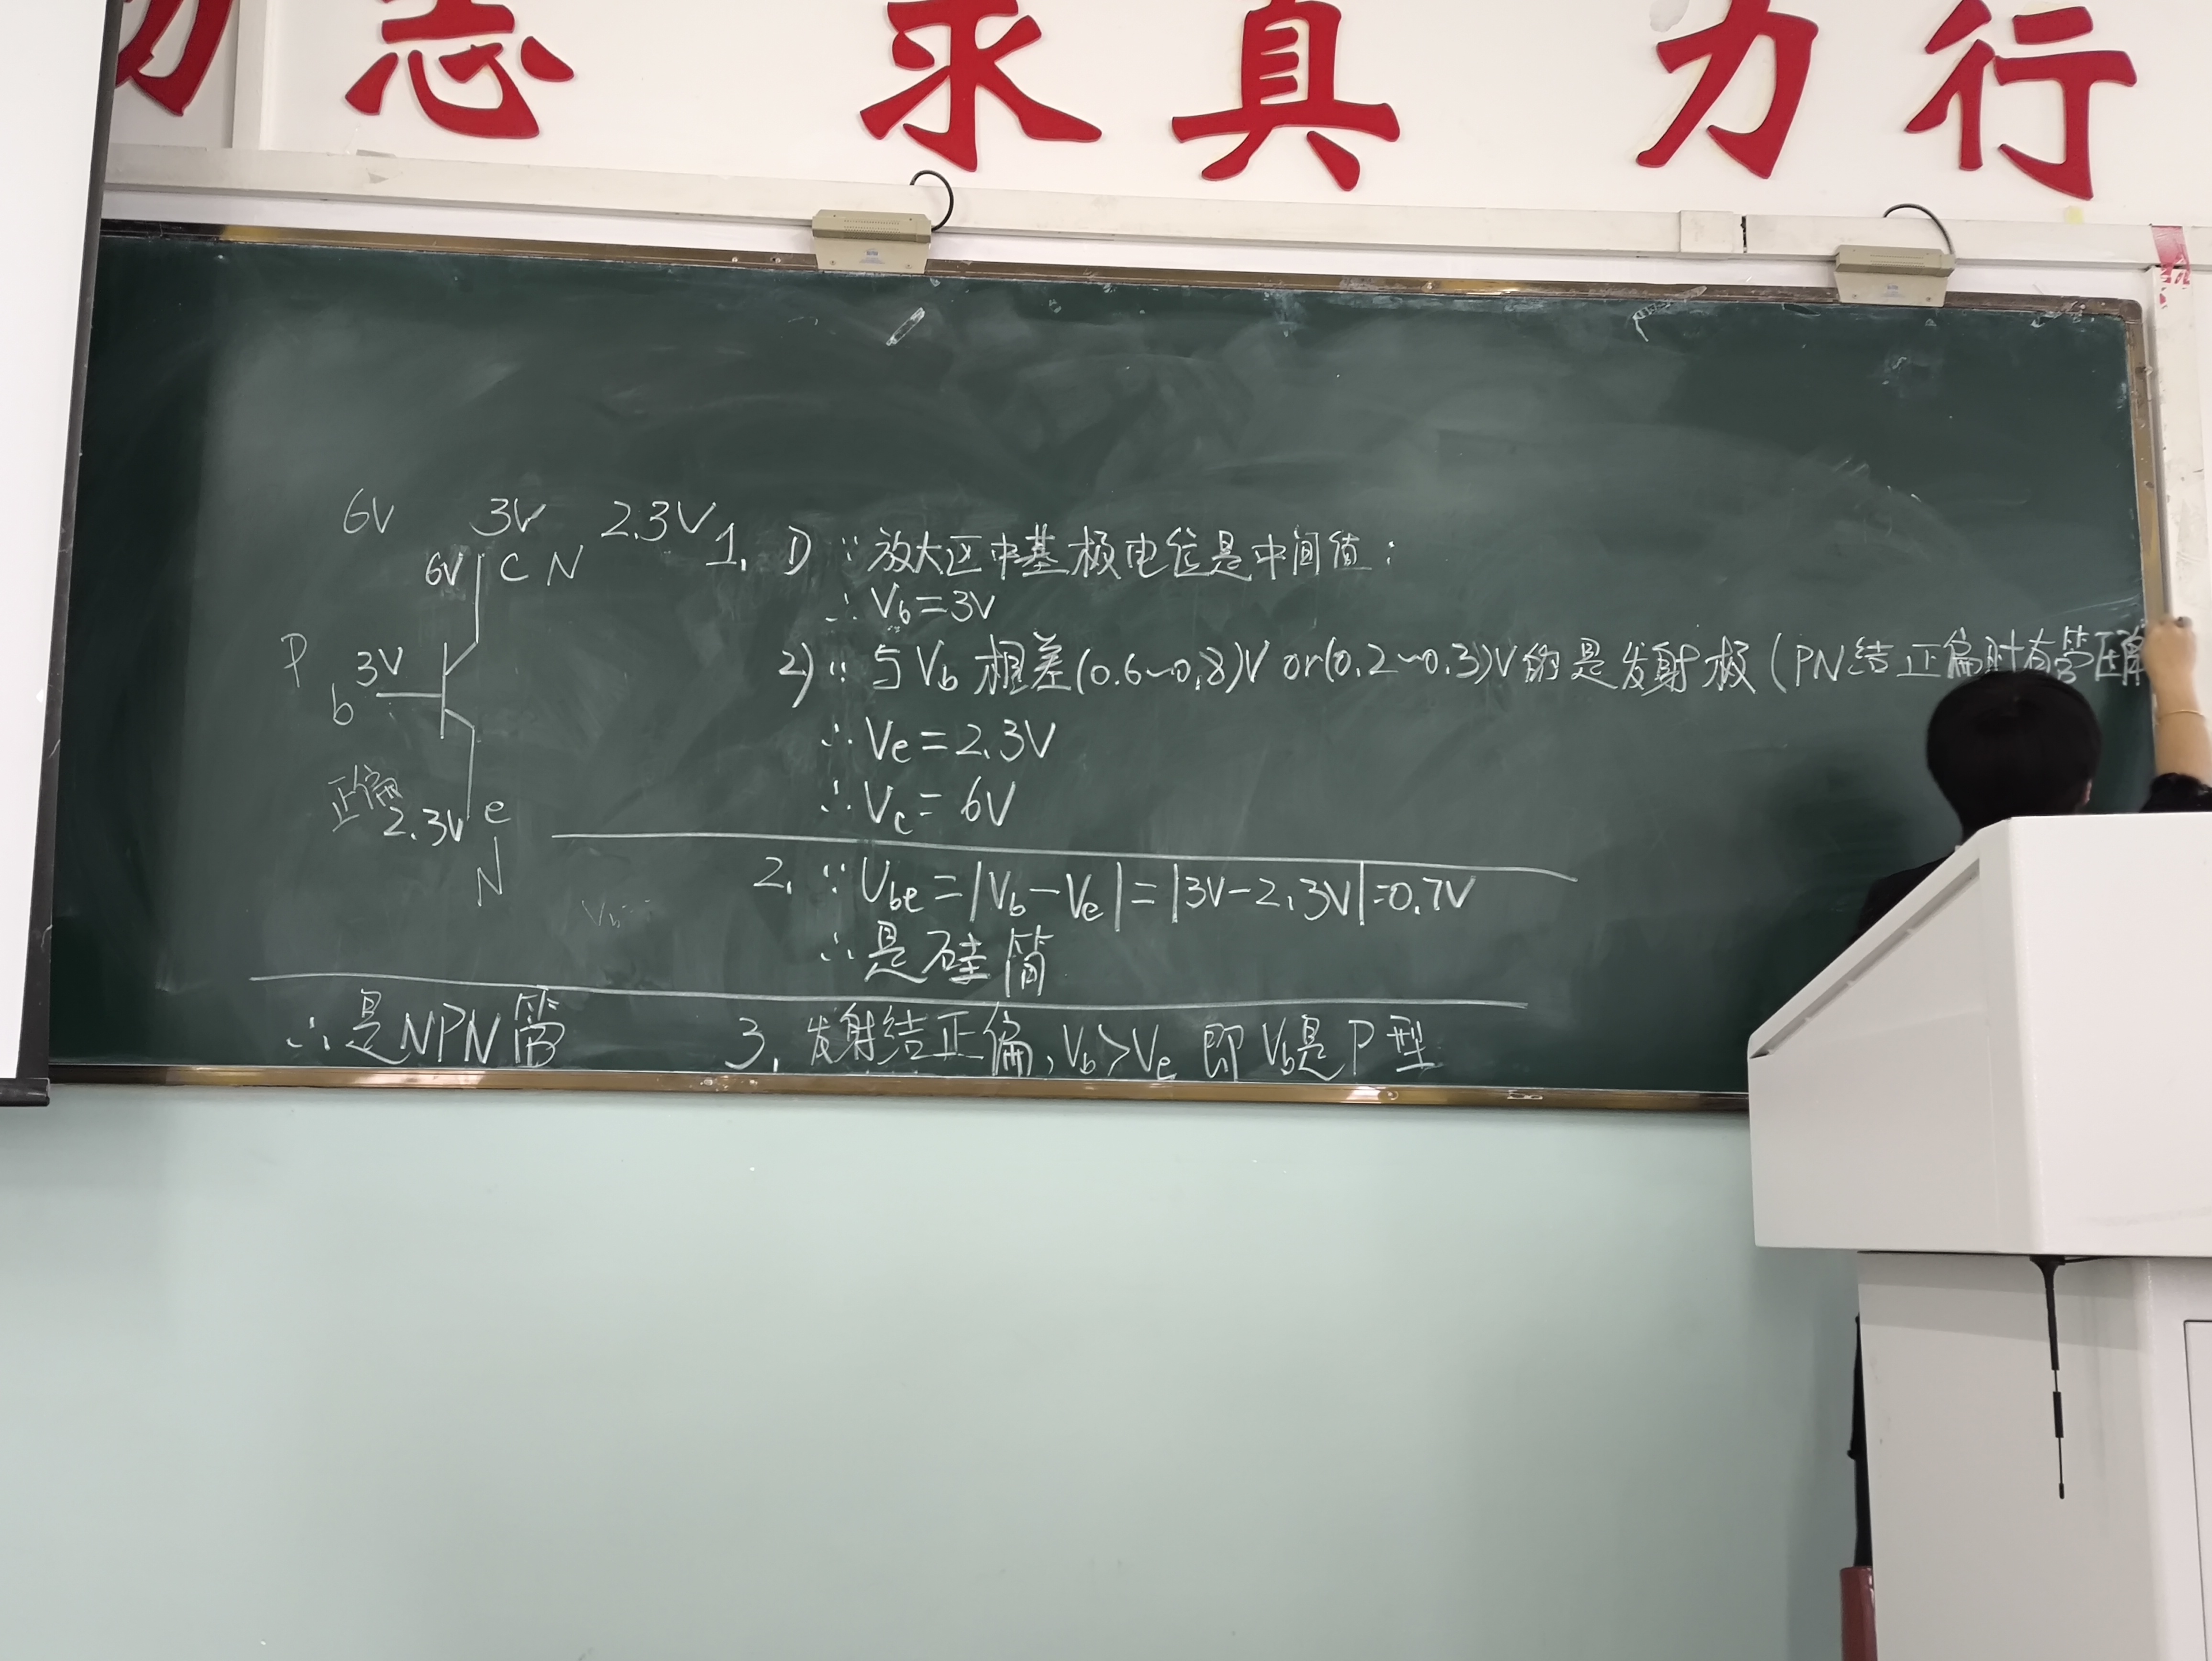 志 求 真 力 行
6V 3V 2.3V
6V C N
P 3V
b
正偏
2.3V e
N
1. 1) ∵放大区中基极电位是中间值:
∴Vb=3V
2) ∵与Vb相差(0.6~0.8)V or(0.2~0.3)V的是发射极(PN结正偏时有管压降
∴Ve=2.3V
∴Vc=6V
2. ∵Ube=|Vb-Ve|=|3V-2.3V|=0.7V
∴是硅筒
∴是NPN管
3. 发射结正偏,Vb>Ve 即Vb是P型